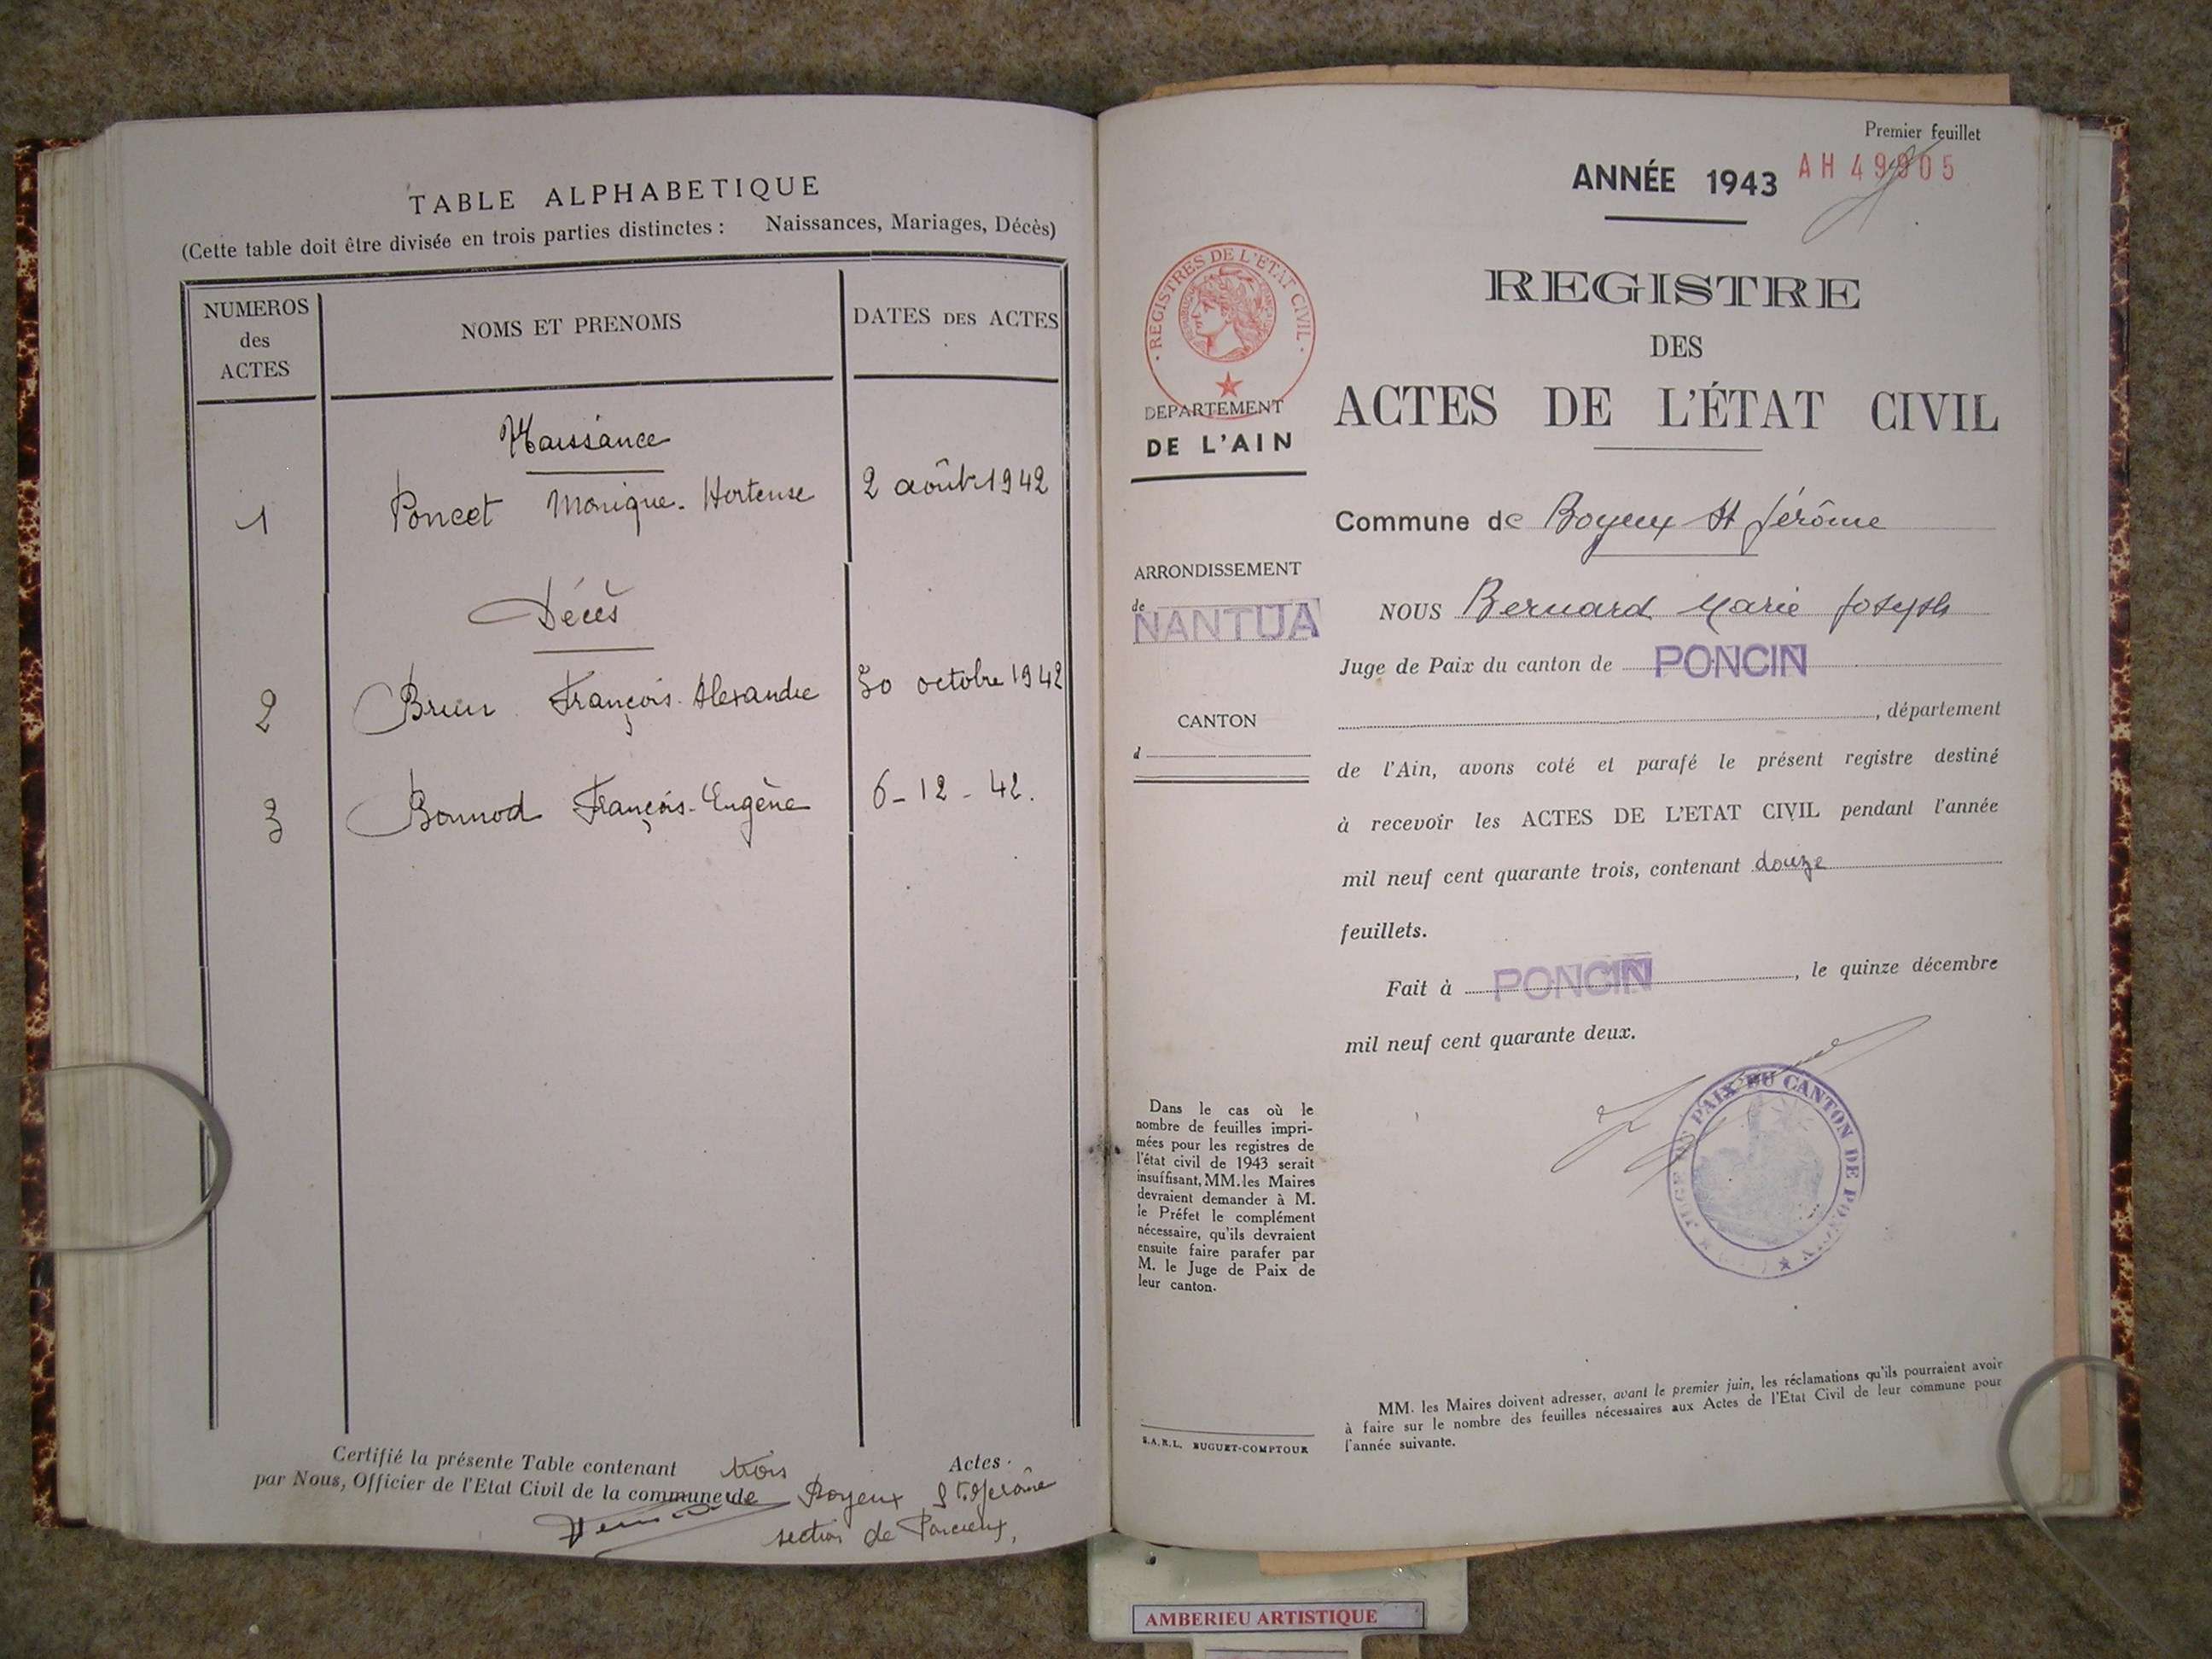 TABLE ALPHABETIQUE
(Cette table doit être divisée en trois parties distinctes : Naissances, Mariages, Décès)
NUMEROS des ACTES
NOMS ET PRENOMS
DATES DES ACTES
Naissance
1 Poncet Monique-Hortense 2 août 1942
Décès
2 Brun François-Alexandre 30 octobre 1942
3 Bonnod François-Eugène 6-12-42.
Certifié la présente Table contenant trois Actes.
par Nous, Officier de l'Etat Civil de la commune de Boyeux St Jérôme
section de
Premier feuillet
ANNÉE 1943
AH 49905
REGISTRES DE L'ETAT CIVIL
REGISTRE
DES
ACTES DE L'ÉTAT CIVIL
DEPARTEMENT
DE L'AIN
Commune de Boyeux St Jérôme
ARRONDISSEMENT
de NANTUA
CANTON
d
NOUS Bernard Marie Joseph
Juge de Paix du canton de PONCIN
, département
de l'Ain, avons coté et parafé le présent registre destiné
à recevoir les ACTES DE L'ETAT CIVIL pendant l'année
mil neuf cent quarante trois, contenant douze
feuillets.
Fait à PONCIN, le quinze décembre
mil neuf cent quarante deux.
JUGE DE PAIX DU CANTON DE PONCIN
Dans le cas où le
nombre de feuilles impri-
mées pour les registres de
l'état civil de 1943 serait
insuffisant, MM. les Maires
devraient demander à M.
le Préfet le complément
nécessaire, qu'ils devraient
ensuite faire parafer par
M. le Juge de Paix de
leur canton.
S.A.R.L. BUGUET-COMPTOUR
MM. les Maires doivent adresser, avant le premier juin, les réclamations qu'ils pourraient avoir
à faire sur le nombre des feuilles nécessaires aux Actes de l'Etat Civil de leur commune pour
l'année suivante.
AMBERIEU ARTISTIQUE